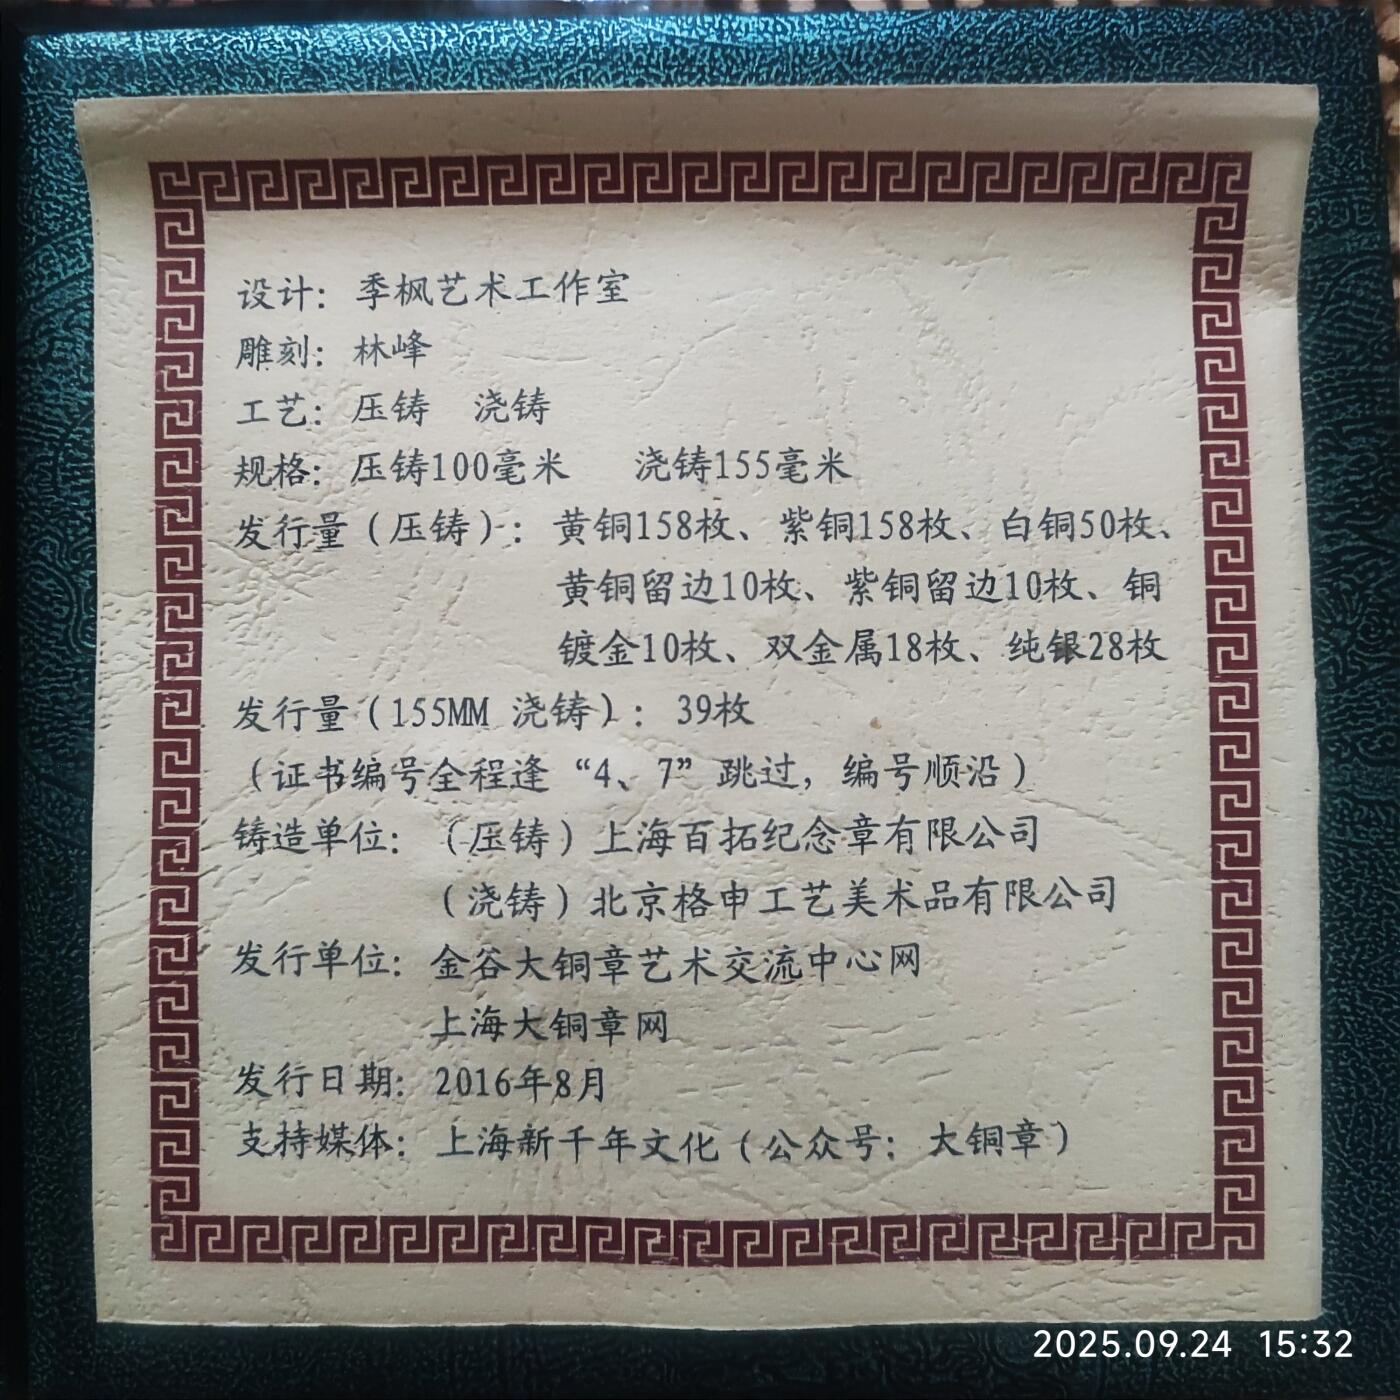 设计：季枫艺术工作室
雕刻：林峰
工艺：压铸 浇铸
规格：压铸100毫米 浇铸155毫米
发行量（压铸）：黄铜158枚、紫铜158枚、白铜50枚、
黄铜留边10枚、紫铜留边10枚、铜
镀金10枚、双金属18枚、纯银28枚
发行量（155MM 浇铸）：39枚
（证书编号全程逢“4、7”跳过，编号顺沿）
铸造单位：（压铸）上海百拓纪念章有限公司
（浇铸）北京格申工艺美术品有限公司
发行单位：金谷大铜章艺术交流中心网
上海大铜章网
发行日期：2016年8月
支持媒体：上海新千年文化（公众号：大铜章）
2025.09.24 15:32